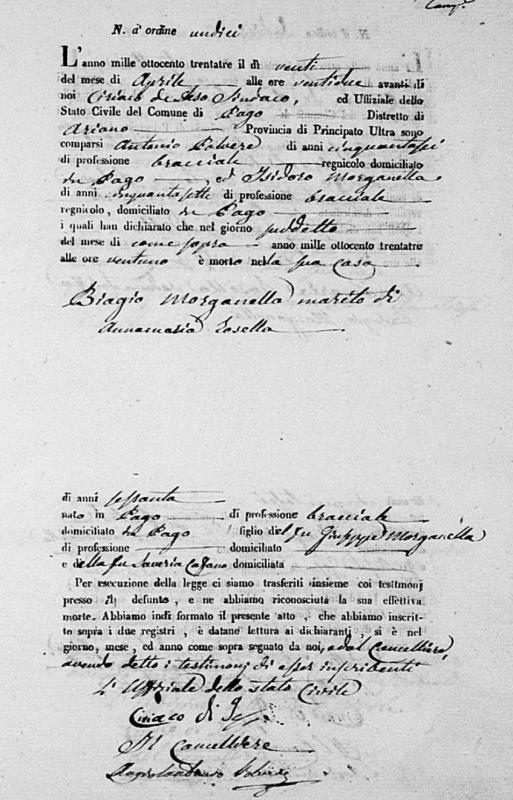 N. d'ordine undici
L'anno mille ottocento trentatre il dì venti
del mese di Aprile alle ore ventidue avanti di
noi Ciriaco de Ieso Sindaco, ed Uffiziale dello
Stato Civile del Comune di Pago Distretto di
Ariano Provincia di Principato Ultra sono
comparsi Antonio di anni cinquantasei
di professione bracciale regnicolo domiciliato
in Pago, ed Isidoro Morganella
di anni cinquantasette di professione bracciale
regnicolo, domiciliato in Pago
i quali han dichiarato che nel giorno suddetto
del mese di come sopra anno mille ottocento trentatre
alle ore ventuno è morto nella sua casa
Biagio Morganella marito di
Annamaria
di anni sessanta
nato in Pago di professione bracciale
domiciliato in Pago figlio del fu Giuseppe Morganella
di professione domiciliato
e della fu Saveria domiciliata
Per esecuzione della legge ci siamo trasferiti insieme coi testimonj
presso il defunto, e ne abbiamo riconosciuta la sua effettiva
morte. Abbiamo indi formato il presente atto, che abbiamo inscrit-
to sopra i due registri, è datane lettura ai dichiaranti, si è nel
giorno, mese, ed anno come sopra segnato da noi, e dal Cancelliere,
avendo detto i testimonj di esser inscribenti
L'Uffiziale dello stato Civile
Ciriaco di
Il Cancelliere